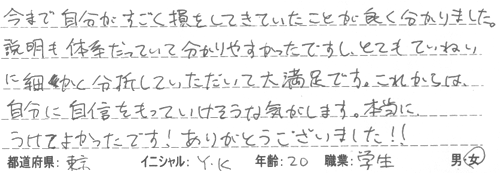 今まで自分がすごく損をしてきていたことが良く分かりました。
説明も体系だっていて分かりやすかったですし、とてもていねい
に細かく分析していただいて大満足です。これからは、
自分に自信をもっていけそうな気がします。本当に
うけてよかったです！ありがとうございました！！
都道府県: 東京 イニシャル: Y.K 年齢: 20 職業: 学生 男・女